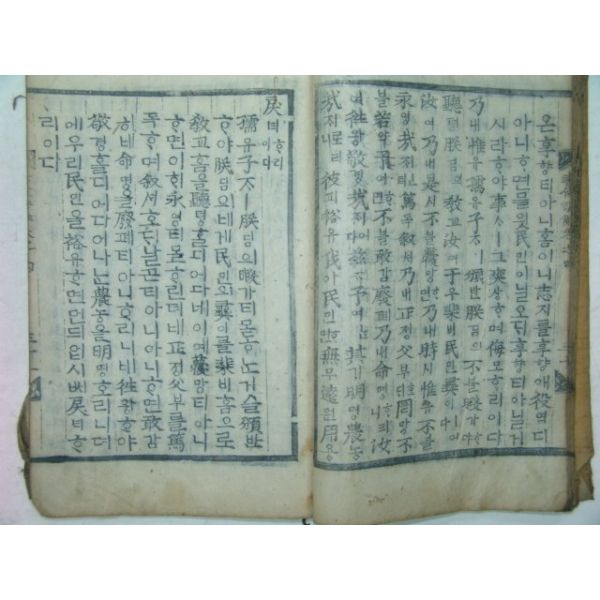 온享향티아니홈이니志지를享향애役역디
아니ᄒᆞ면믈읫民민이닐오ᄃᆡ享향티아닐거
시라ᄒᆞ야事ᄉᆞㅣ그爽상ᄒᆞ며侮모ᄒᆞ리이다
乃내惟유孺유子ᄌᆞㅣ頒반朕딤의不블暇가ᄒᆞ야
聽텽朕딤의敎교汝여于우棐비民민彛이니
汝여乃내是시不블蘉망ᄒᆞ면乃내時시惟유不블
永영哉ᄌᆡㄴ뎌篤독敍셔乃내正졍父부호ᄃᆡ罔망不
블若약予여ᄒᆞ면不블敢감廢폐乃내命명ᄒᆞ리니汝여
往왕敬경哉ᄌᆡ어다茲ᄌᆞ予여其기明명農농
哉ᄌᆡ로리니彼피裕유我아民민ᄒᆞ면無무遠원用용
戾려ᄒᆞ리이다
孺유子ᄌᆞㅣ朕딤의暇가티몯ᄒᆞ논거슬頒반
ᄒᆞ야朕딤의네게民민의彛이를棐비홈으로
敎교홈을聽텽홀디어다네이예蘉망티아니
ᄒᆞ면이永영티몯ᄒᆞ린뎌네正졍父부를篤
독ᄒᆞ며敍셔호ᄃᆡ날ᄀᆞᆮ티아니아니ᄒᆞ면敢감
히네命명을廢폐티아니ᄒᆞ리니네往왕ᄒᆞ야
敬경홀디어다이나ᄂᆞᆫ農농을明명호리니뎌
에우리民민을裕유ᄒᆞ면먼ᄃᆡ업시ᄡᅥ戾려ᄒᆞ
리이다